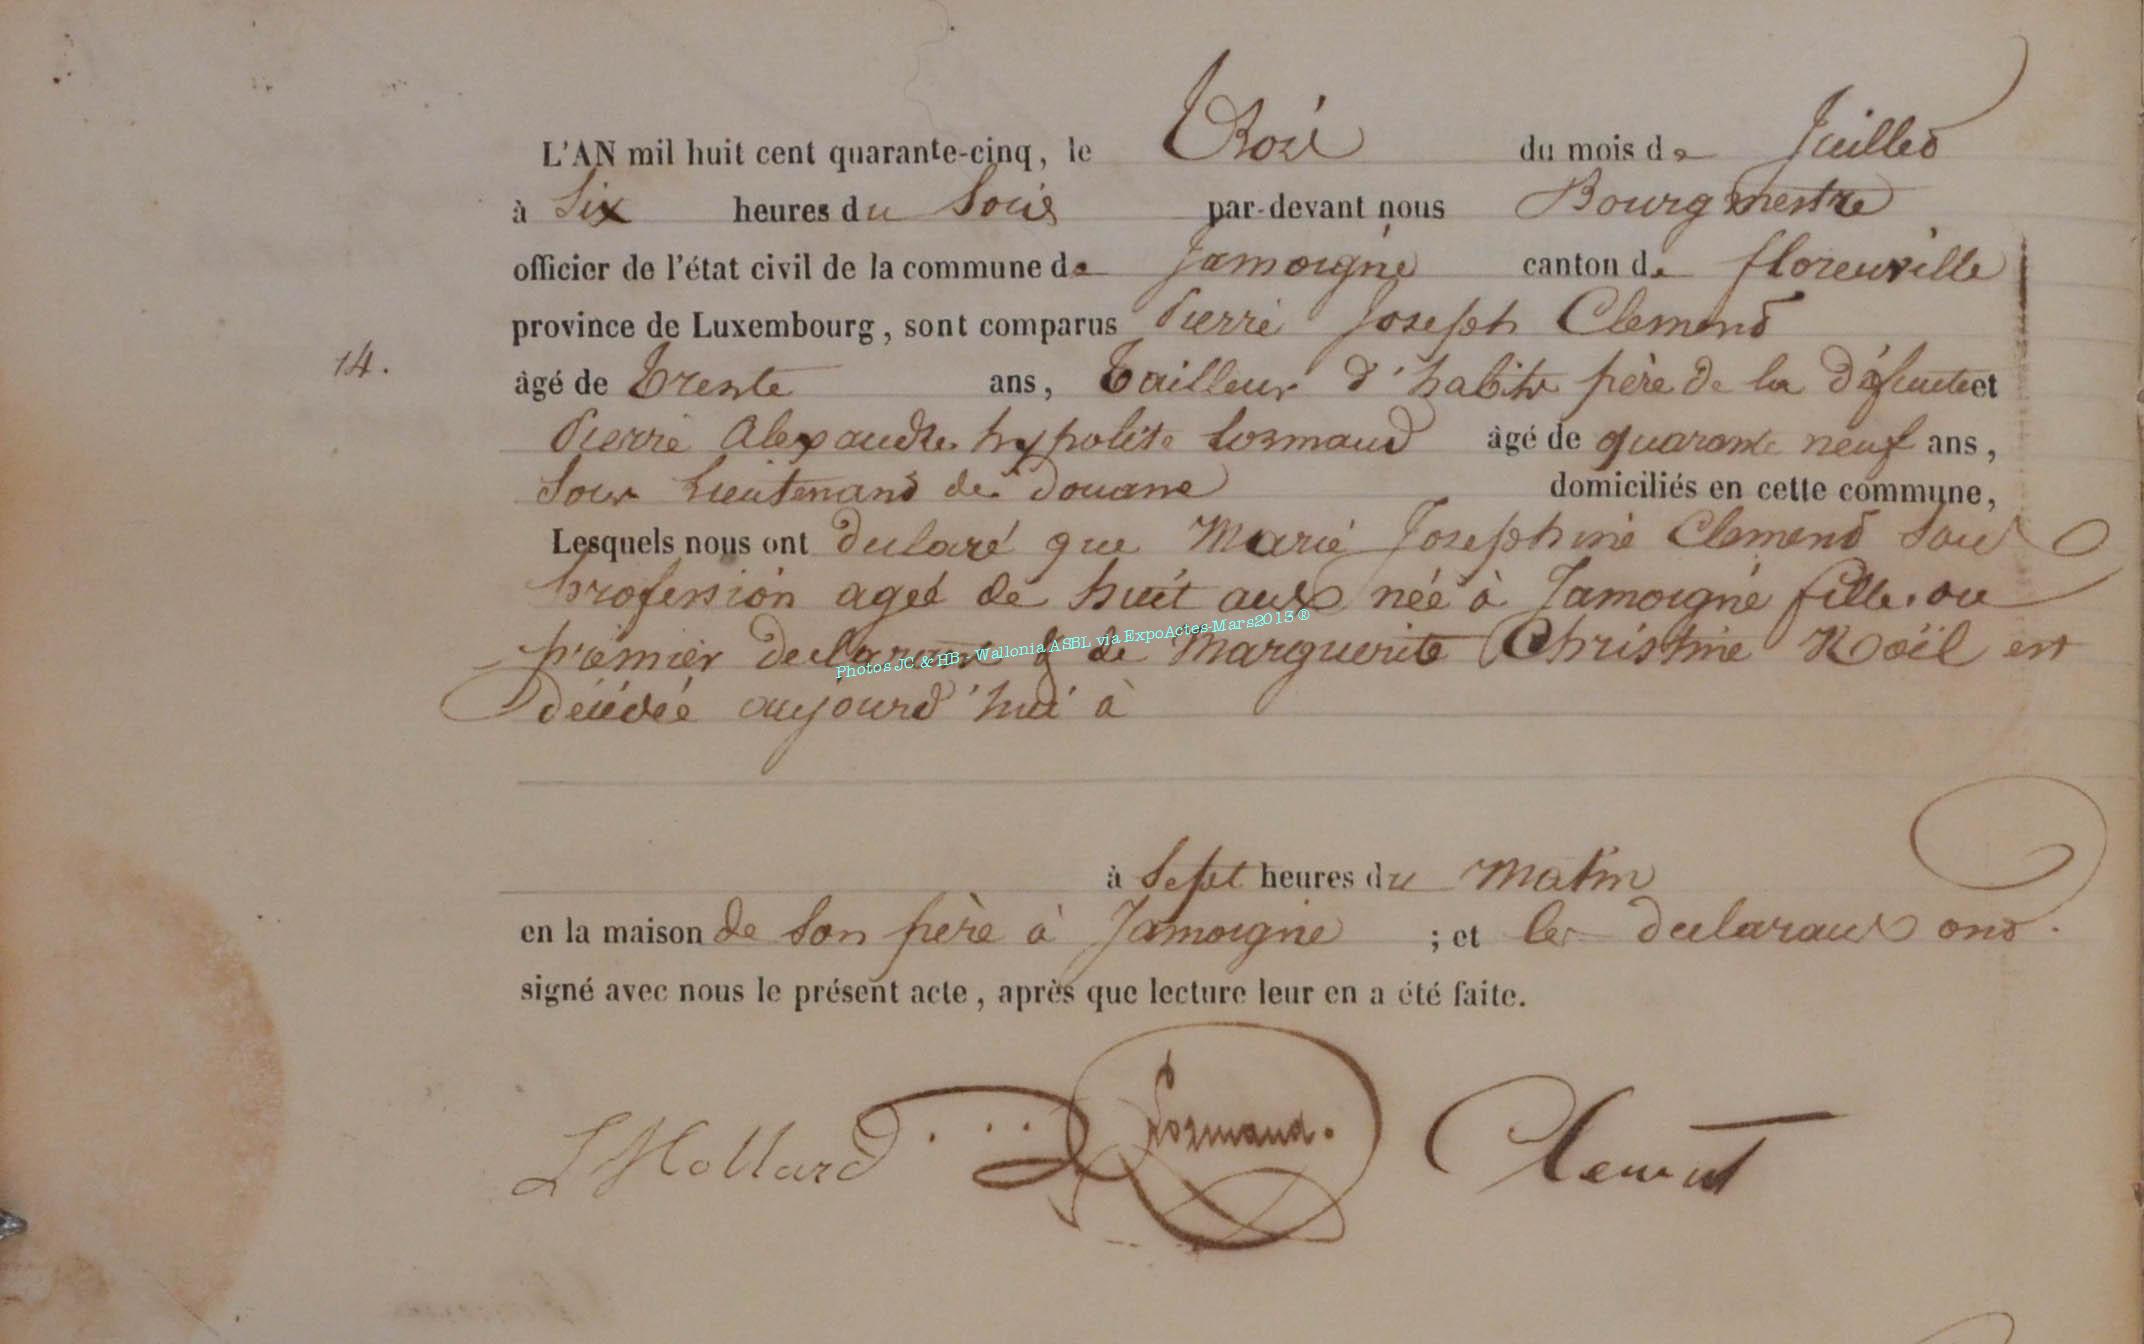 L'AN mil huit cent quarante-cinq, le Trois du mois de Juillet
à Six heures du Soir par-devant nous Bourgmestre
officier de l'état civil de la commune de Jamoigne canton de florenville
province de Luxembourg, sont comparus Pierre Joseph Clement
14.
âgé de Trente ans, Tailleur d'habits père de la défunte et
Pierre Alexandre hypolite Lormand âgé de quarante neuf ans,
Sous Lieutenant de Douane domiciliés en cette commune,
Lesquels nous ont declaré que Marie Josephine Clement Sans
profession ageé de huit ans née à Jamoigne fille au
premier declarant & de Marguerite Christine Noël est
décédée aujourd'hui à
Photos JC & HB - Wallonia ASBL via ExpoActes-Mars2013 ®
à Sept heures du Matin
en la maison de Son père à Jamoigne ; et les declarants ont
signé avec nous le présent acte, après que lecture leur en a été faite.
L Hollard Lormand. Clement